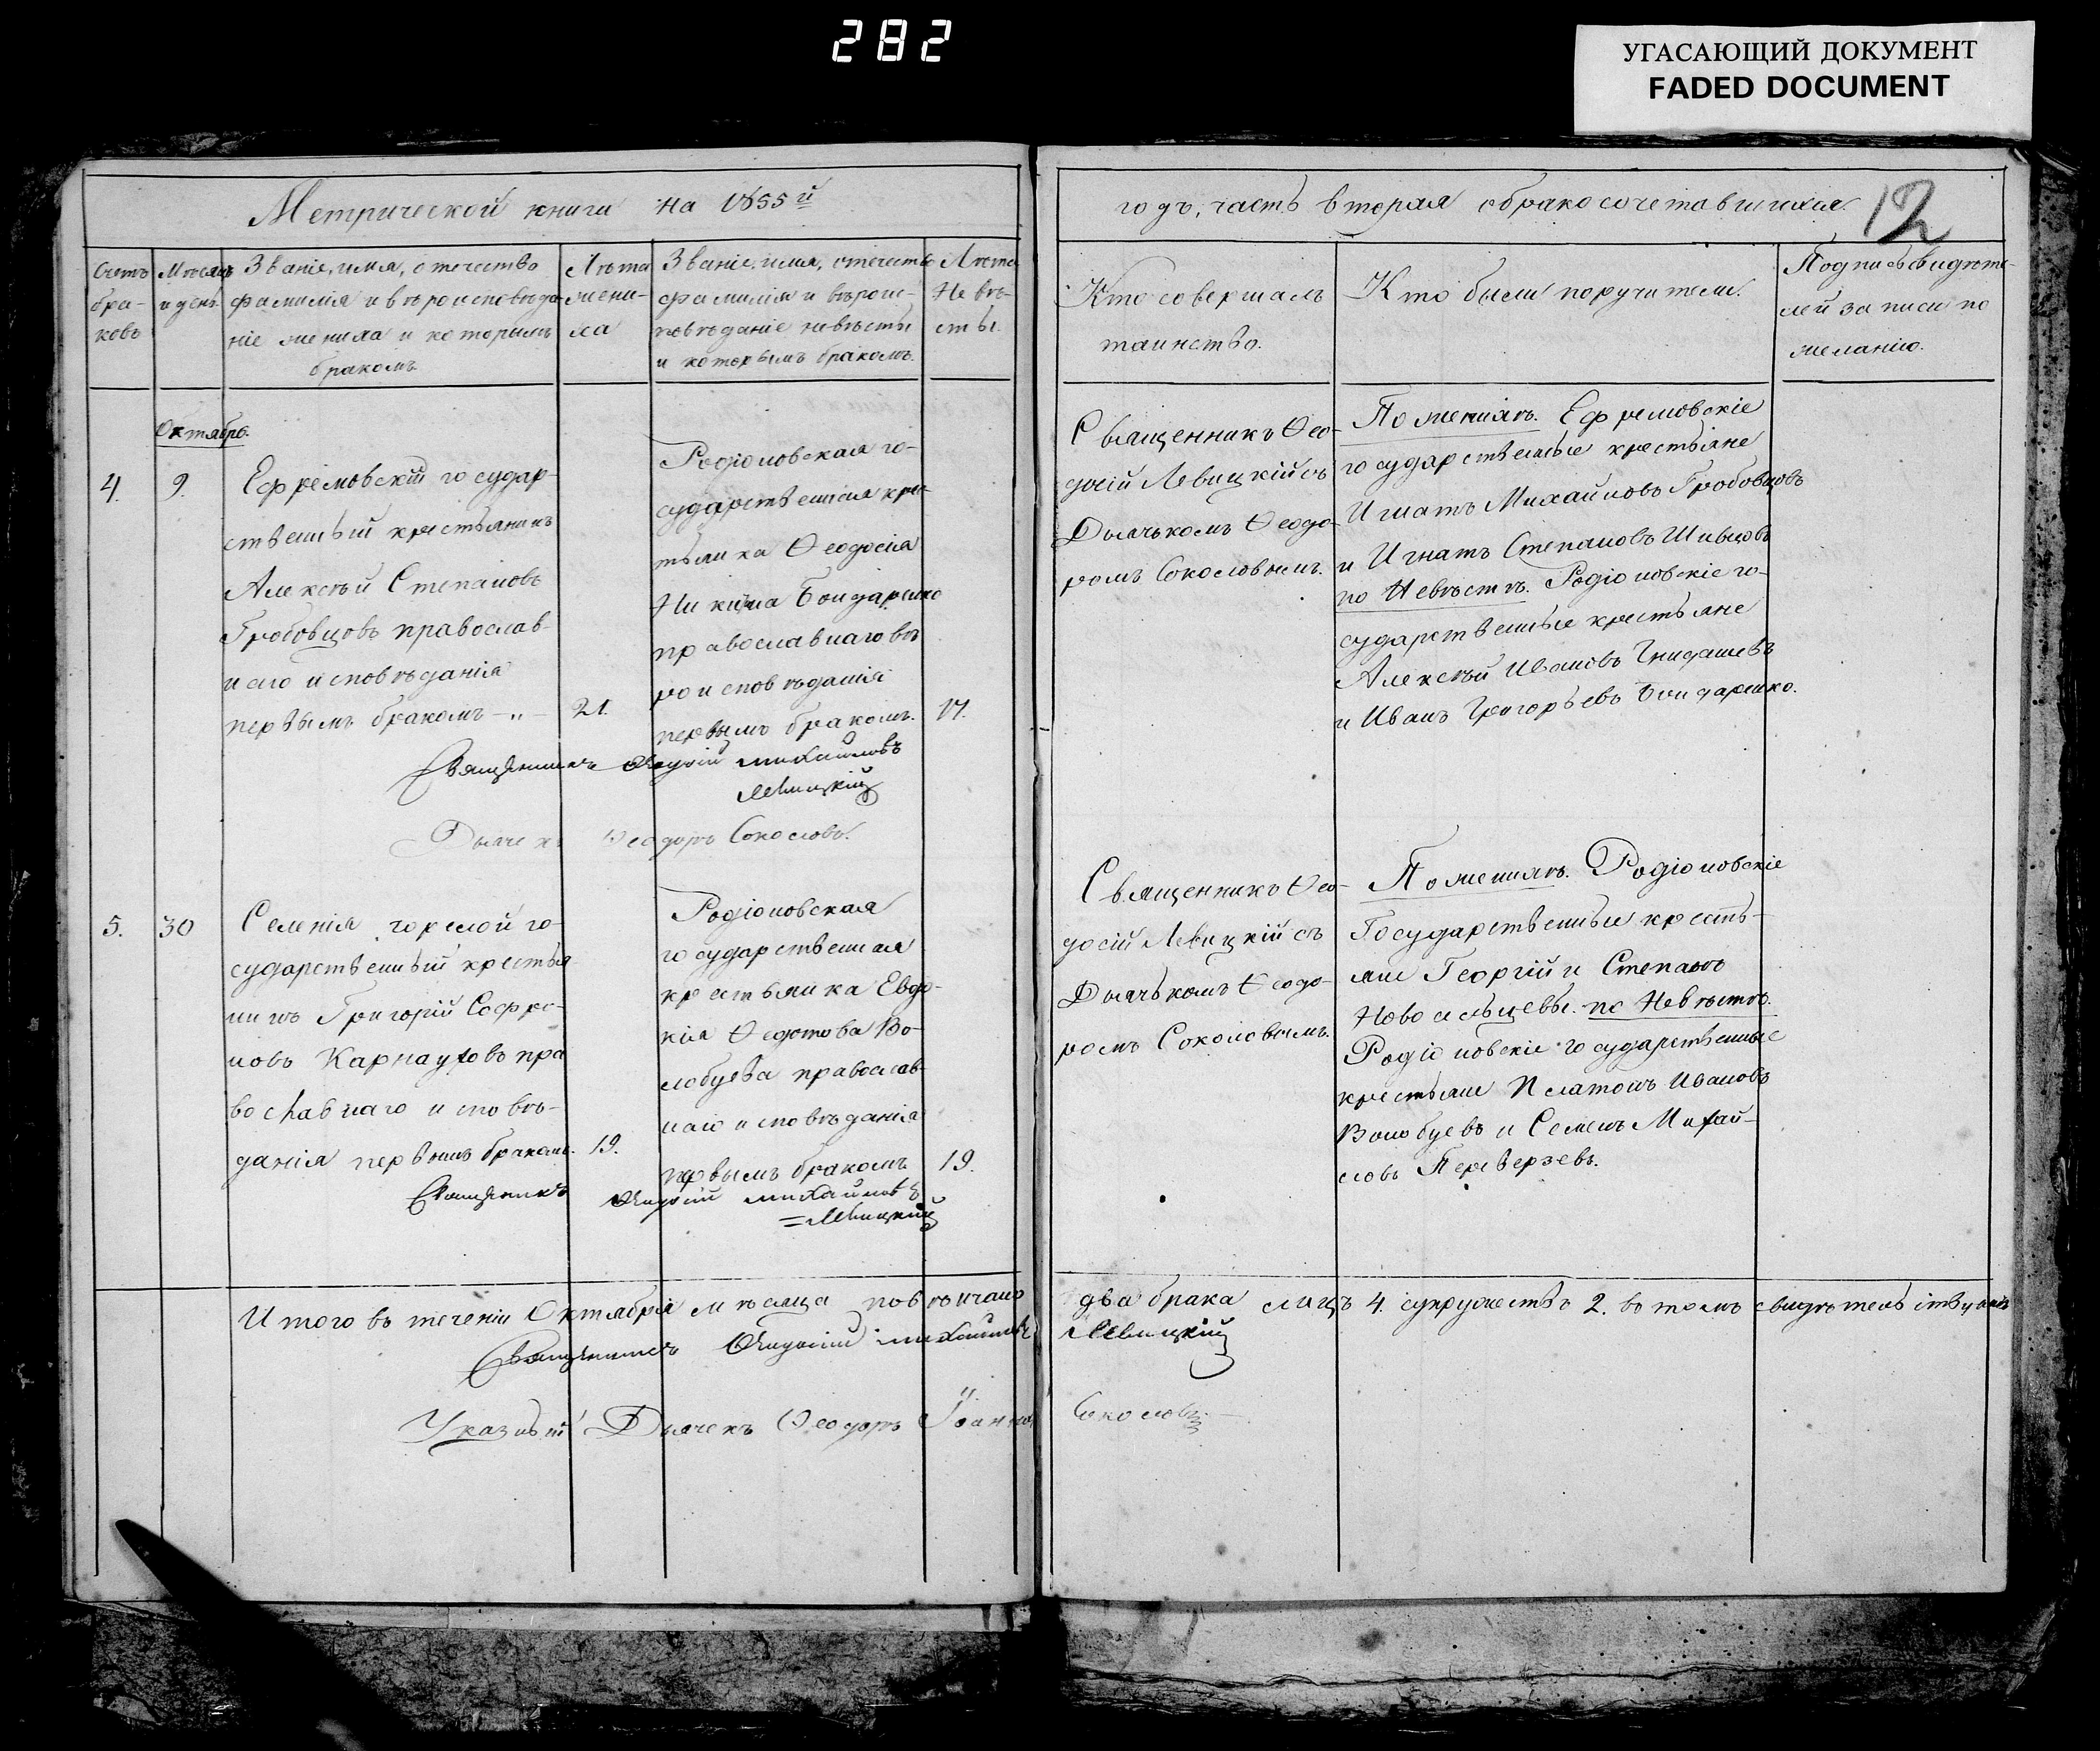 282
УГАСАЮЩИЙ ДОКУМЕНТ
FADED DOCUMENT
Метрической книги на 1855й
годъ, часть вторая о бракосочетавшихся.
12
Счетъ
бра-
ковъ
Мѣсяцъ
и день
Званіе, имя, отечество
фамилія и вѣроисповѣда-
ніе жениха и которымъ
бракомъ
Лѣта
жени-
ха
Званіе, имя, отечество
фамилія и вѣроис-
повѣданіе невѣсты
и которымъ бракомъ.
Лѣта
Невѣ-
сты.
Кто совершалъ
таинство.
Кто были поручители.
Подпись свидѣте-
лей записи по
желанію.
Октября.
4.
9.
Ефремовскій государ-
ственный крестьянинъ
Алексѣй Степановъ
Гробовцовъ православ-
наго исповѣданія
первымъ бракомъ - „ -
21.
Родіоновская го-
сударственная кре-
стьянка Ѳеодосія
Никина Бондаренко
православнаго вѣ
роисповѣданія
первымъ бракомъ.
17.
Священникъ Ѳеодосій Михайловъ
Левицкій
Дьячекъ Ѳеодоръ Соколовъ.
Священникъ Ѳео-
досій Левицкій съ
Дьячькомъ Ѳеодо-
ромъ Соколовымъ.
По женихѣ. Ефремовскіе
государственные крестьяне
Игнатъ Михайловъ Гробовцовъ
и Игнатъ Степановъ Шивцовъ
по Невѣстѣ. Родіоновскіе го-
сударственные крестьяне
Алексѣй Ивановъ Гнидашевъ
и Иванъ Григорьевъ Бондаренко.
5.
30
Селенія горелой го-
сударственный крестья
нинъ Григорій Софро-
новъ Карнауховъ пра
вославнаго исповѣ-
данія первымъ бракомъ.
19.
Родіоновская
государственная
крестьянка Евдо-
кія Ѳедотова Во-
лобуева православ-
наго исповѣданія
первымъ бракомъ
19.
Священникъ Ѳеодосій Михайловъ
=Левицкій
Священникъ Ѳео-
досій Левицкій съ
Дьячькомъ Ѳеодо-
ромъ Соколовымъ.
По женихѣ. Родіоновскіе
Государственные кресть-
яне Георгій и Степанъ
Новосельцевы. по Невѣстѣ.
Родіоновскіе государственные
крестьяне Платонъ Ивановъ
Волобуевъ и Семенъ Михай-
ловъ Переверзевъ.
Итого въ теченіи Октября мѣсяца повѣнчано два брака лицъ 4. супружествъ 2. въ томъ свидѣтельствуютъ
Священникъ Ѳеодосій Михайловъ Левицкій
Указный Дьячекъ Ѳеодоръ Соколовъ.